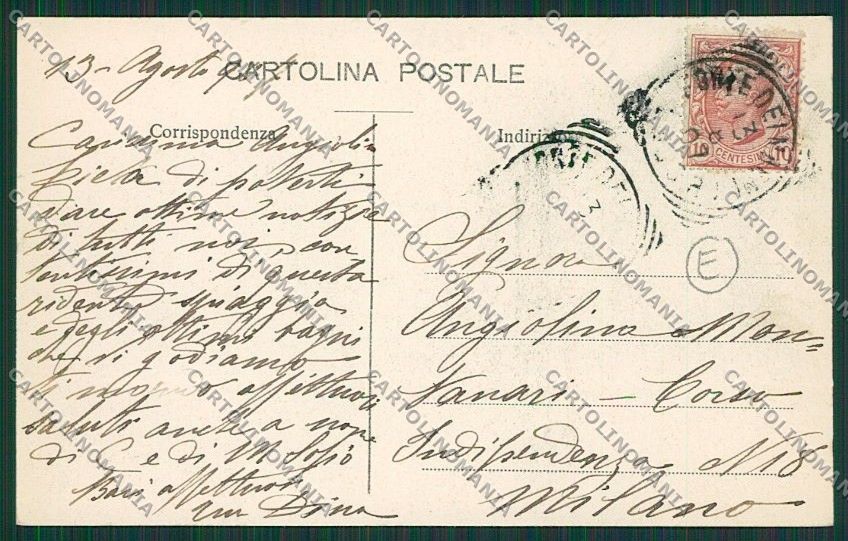 CARTOLINA POSTALE
13 - Agosto
Corrispondenza
Indirizzo
Carissima Angiolina
lieta di poterti
dare ottime notizie
di tutti noi, con
tentissimi di questa
ridente spiaggia
e degli ottimi bagni
che vi godiamo
ti affettuosi
saluti anche a nome
di C e di M. Sofio
Baci affettuosi
Dina
10 CENTESIMI 10
E
Signora
Angiolina Mon-
tanari - Corso
Indipendenza N 18
Milano
CARTOLINOMANIA